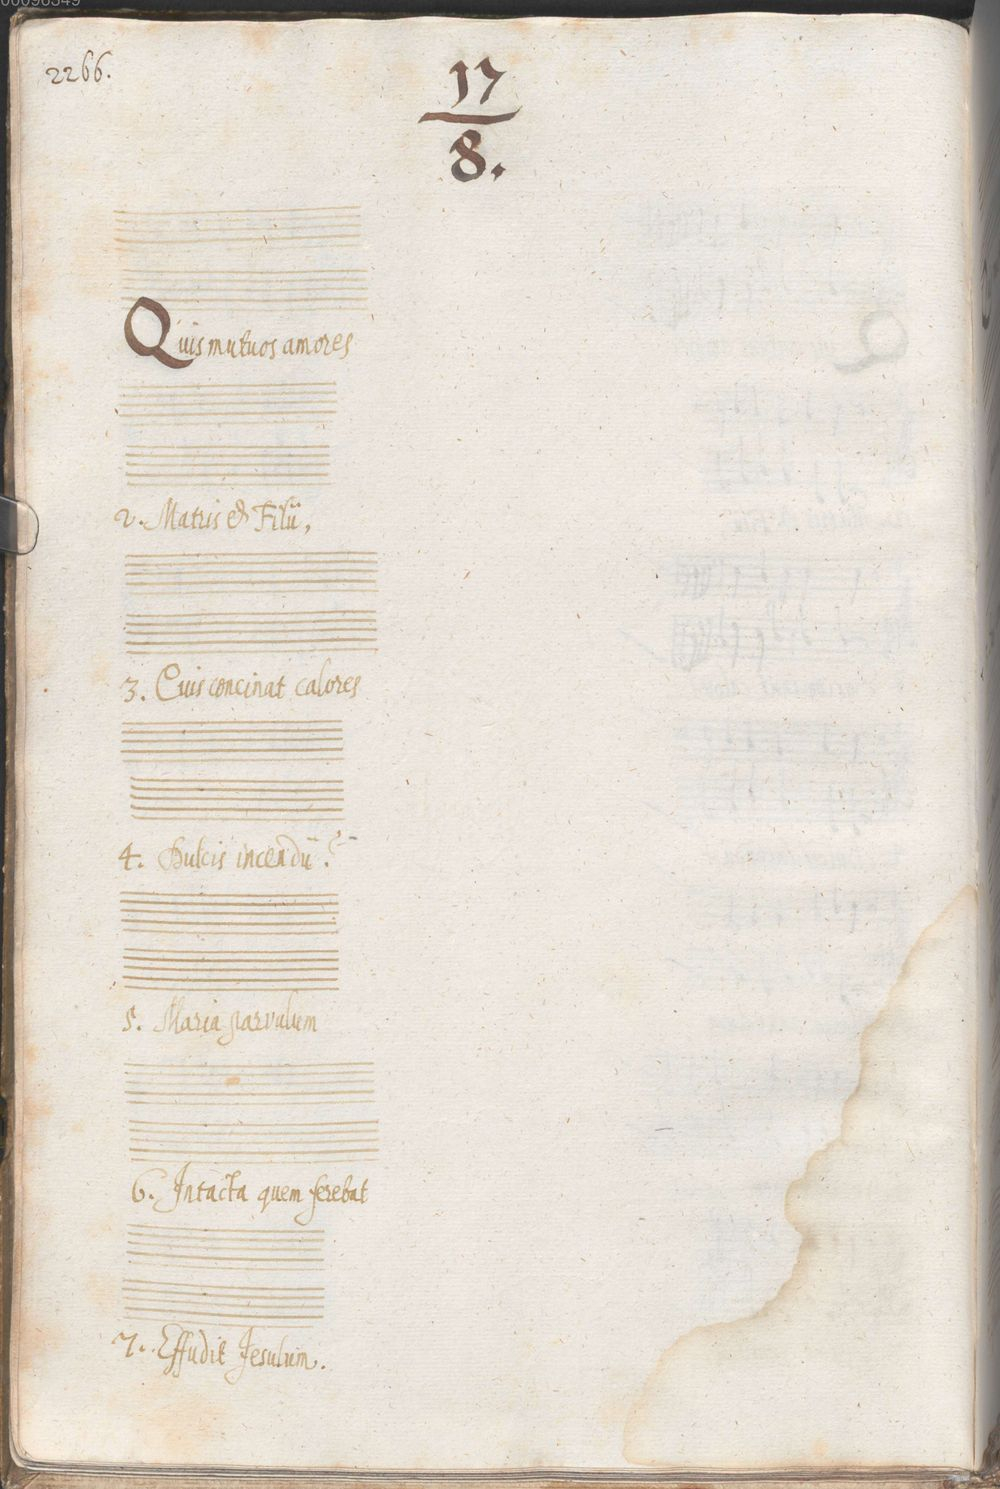 2266.
17
8.
Quis mutuos amores
2. Matris & Filii,
3. Cuis concinat calores
4. Dulcis incendii?
5. Maria parvulum
6. Intacta quem ferebat
7. Effudit Jesulum.